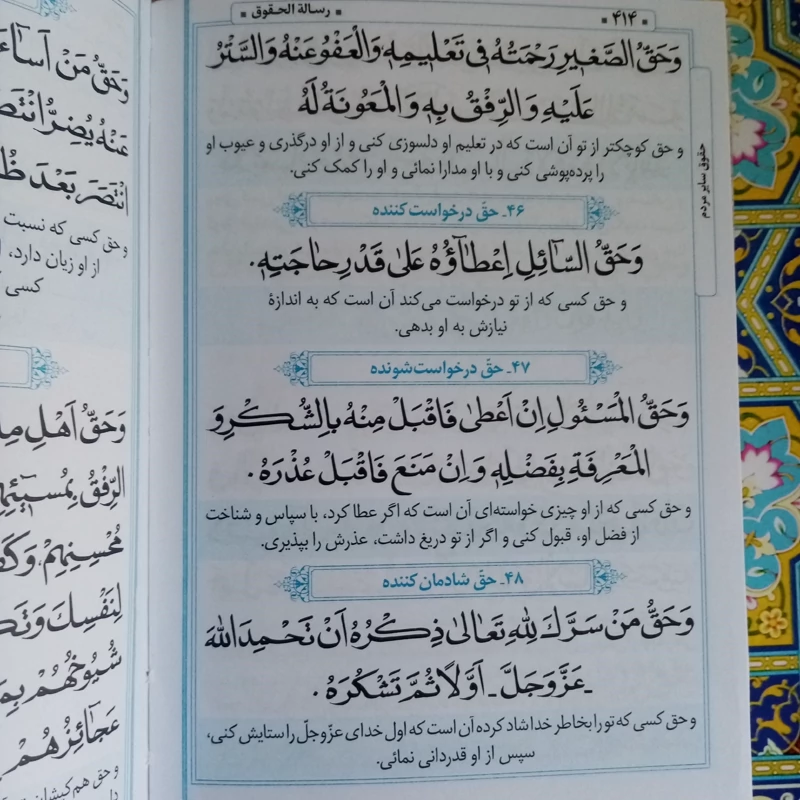 ▪ ۴۱۴ ▪
▪ رسالة الحقوق ▪
حقوق سایر مردم
وَحَقُّ الصَّغیرِ رَحْمَتُهُ فی تَعْلیمِهِ وَالْعَفْوُ عَنْهُ وَالسَّتْرُ
عَلَیْهِ وَالرِّفْقُ بِهِ وَالْمَعُونَةُ لَهُ
و حق کوچکتر از تو آن است که در تعلیم او دلسوزی کنی و از او درگذری و عیوب او
را پرده‌پوشی کنی و با او مدارا نمائی و او را کمک کنی.
۴۶ـ حقّ درخواست کننده
وَحَقُّ السّآئِلِ اِعْطآؤُهُ عَلیٰ قَدْرِ حاجَتِهِ.
و حق کسی که از تو درخواست می‌کند آن است که به اندازهٔ
نیازش به او بدهی.
۴۷ـ حقّ درخواست‌شونده
وَحَقُّ الْمَسْئُولِ اِنْ اَعْطیٰ فَاقْبَلْ مِنْهُ بِالشُّکْرِ وَ
الْمَعْرِفَةِ بِفَضْلِهِ وَ اِنْ مَنَعَ فَاقْبَلْ عُذْرَهُ.
و حق کسی که از او چیزی خواسته‌ای آن است که اگر عطا کرد، با سپاس و شناخت
از فضل او، قبول کنی و اگر از تو دریغ داشت، عذرش را بپذیری.
۴۸ـ حقّ شادمان کننده
وَحَقُّ مَنْ سَرَّكَ لِلّٰهِ تَعالیٰ ذِکْرُهُ اَنْ تَحْمِدَ اللهَ
ـ عَزَّوَجَلَّ ـ اَوَّلاً ثُمَّ تَشْکُرَهُ.
و حق کسی که تو را بخاطر خدا شاد کرده آن است که اول خدای عزّوجلّ را ستایش کنی،
سپس از او قدردانی نمائی.
وَحَقُّ مَنْ اَسآءَ
عَنْهُ یُضِرُّ
انْتَصَرَ بَعْدَ
و حق کسی که نسبت
از او زیان دارد،
کسی
وَحَقُّ اَهْلِ
الرِّفْقُ بِمُسیئِهِمْ
مُحْسِنِهِمْ وَ
لِنَفْسِكَ وَ
شُیُوخُهُمْ
عَجآئِزُهُمْ
و حق هم‌کیشان